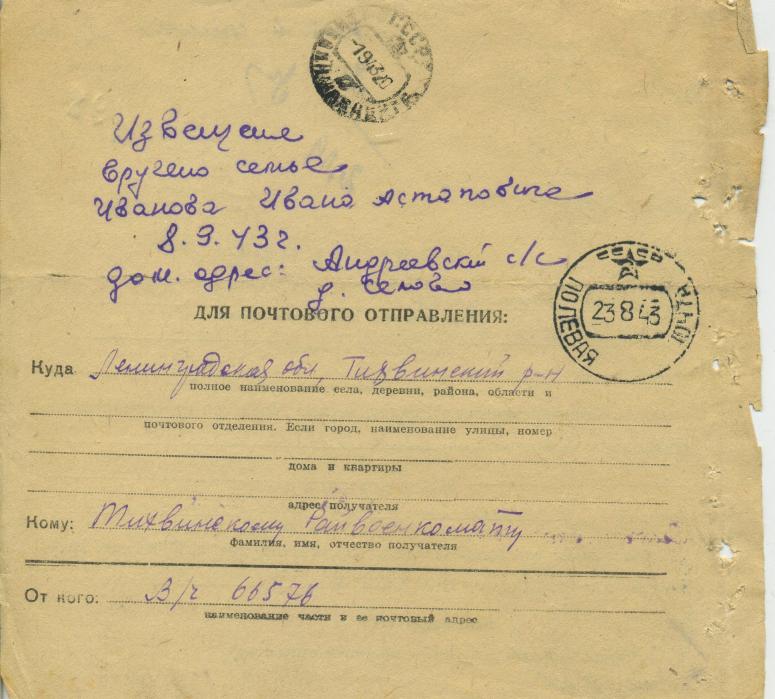 СССР
-1943
Извещение
вручено семье
Иванова Ивана Астаповича
8.9.43г.
дом. адрес: Андреевский с/с
д.
СССР
ПОЛЕВАЯ ПОЧТА
23 8 43
ДЛЯ ПОЧТОВОГО ОТПРАВЛЕНИЯ:
Куда Ленинградская обл, Тихвинский р-н
полное наименование села, деревни, района, области и
почтового отделения. Если город, наименование улицы, номер
дома и квартиры
адрес получателя
Кому: Тихвинскому Райвоенкомату
фамилия, имя, отчество получателя
От кого: В/ч 66576
наименование части и ее почтовый адрес